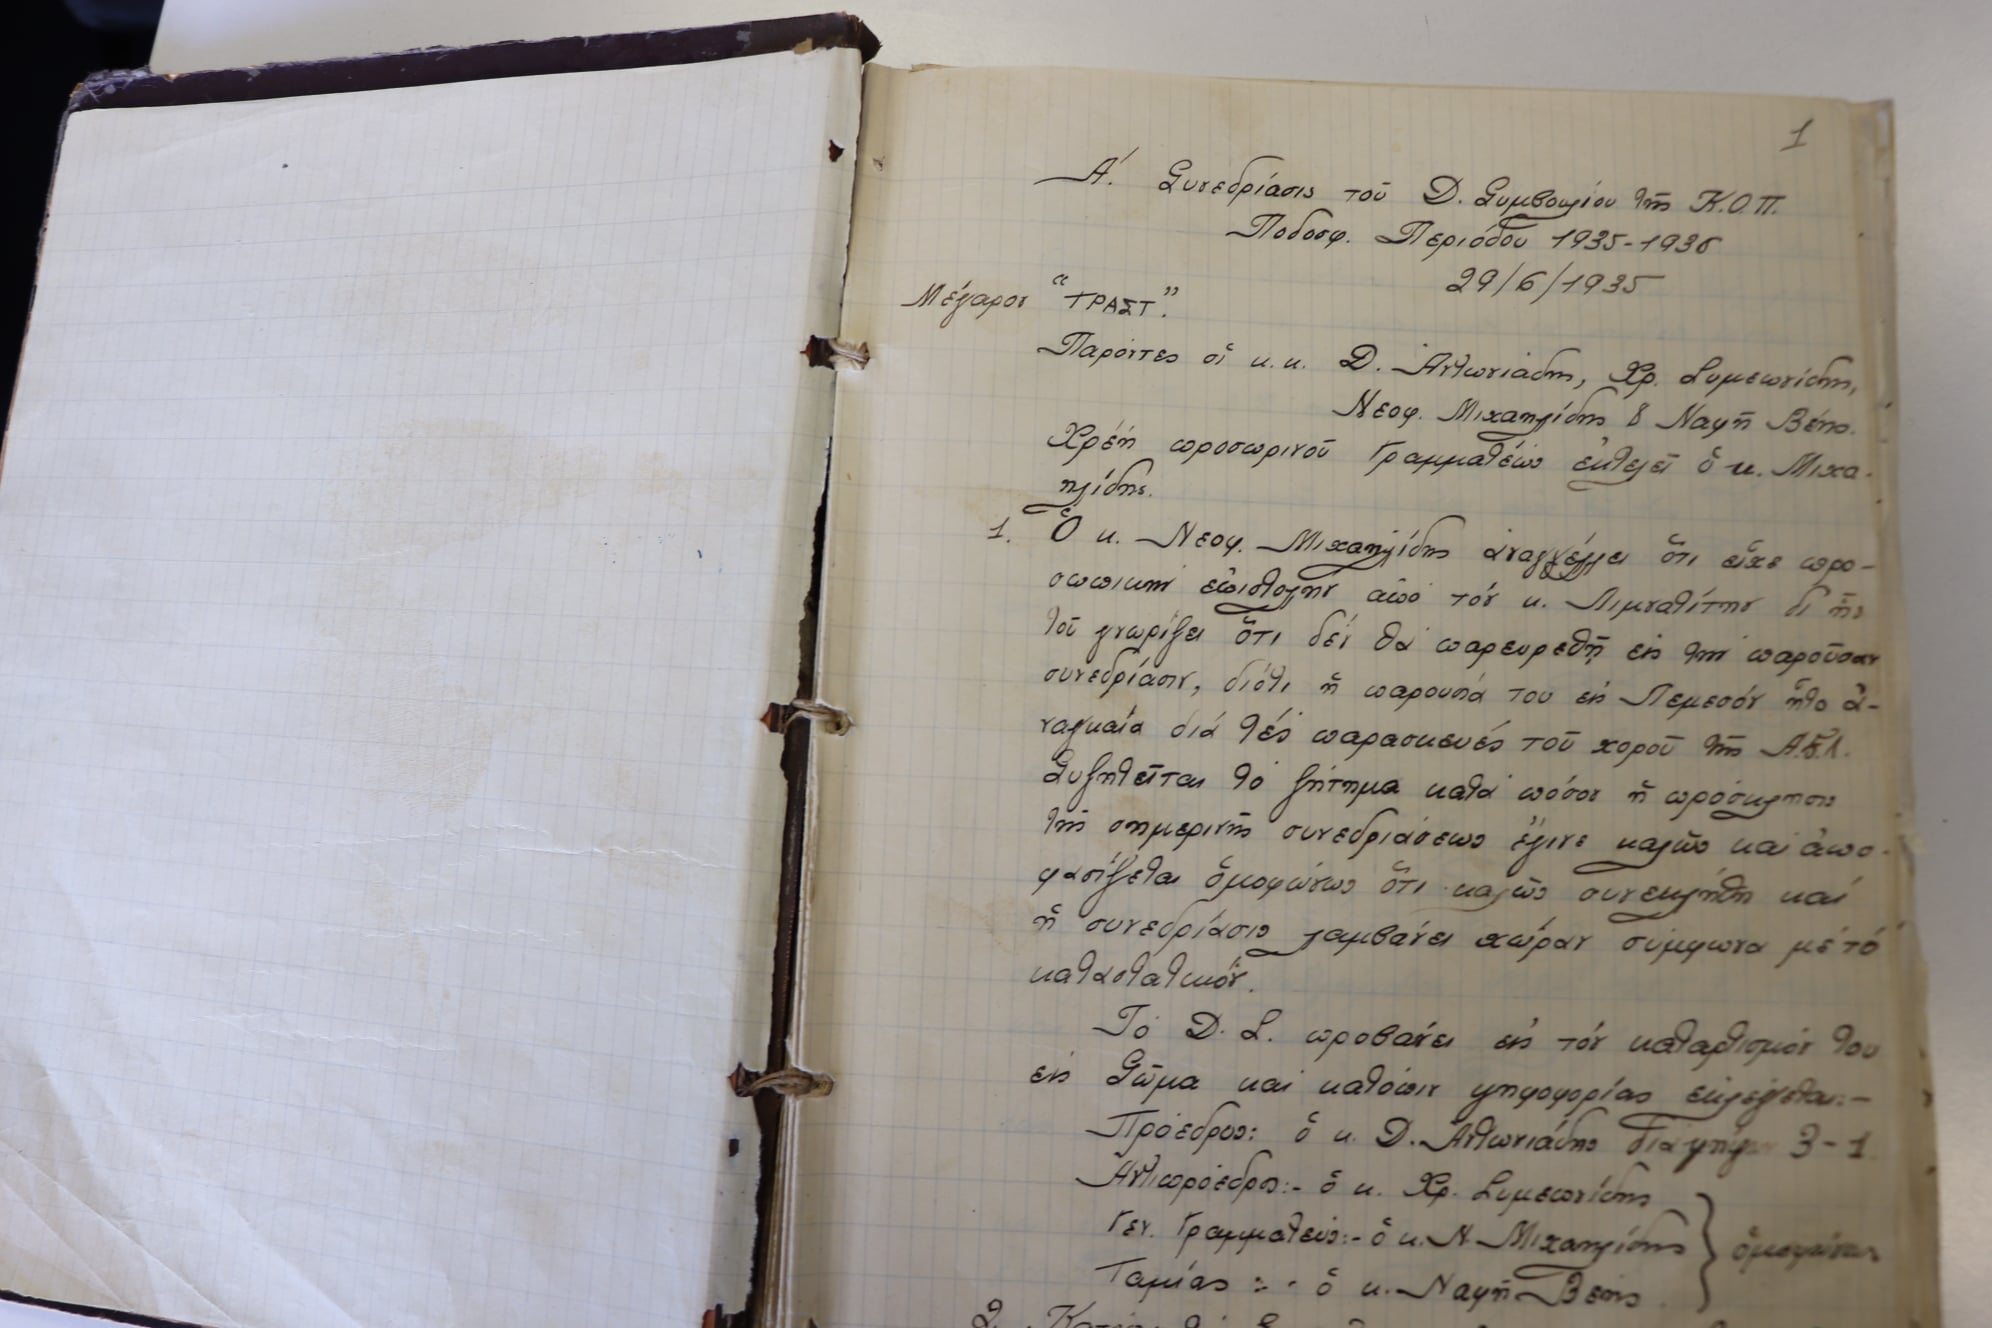 1
Α΄. Συνεδρίασις τοῦ Δ. Συμβουλίου τῆς Κ.Ο.Π.
Ποδοσφ. Περιόδου 1935-1936
29/6/1935
Μέγαρον "ΤΡΑΣΤ".
Παρόντες οἱ κ.κ. Δ. Ἀντωνιάδης, Χρ. Συμεωνίδης,
Νεοφ. Μιχαηλίδης & Ναφῆ Βέης.
Χρέη προσωρινοῦ Γραμματέως ἐκτελεῖ ὁ κ. Μιχα-
ηλίδης.
1. Ὁ κ. Νεοφ. Μιχαηλίδης ἀναγγέλλει ὅτι εἶχε προ-
σωπικήν ἐπιστολήν ἀπό τόν κ. Λιμνατίτην δι ἧς
τοῦ γνωρίζει ὅτι δέν θά παρευρεθῇ εἰς τήν παροῦσαν
συνεδρίασιν, διότι ἡ παρουσία του εἰς Λεμεσόν ἦτο ἀ-
ναγκαία διά τές παρασκευές τοῦ χοροῦ τῆς Α.Ε.Λ.
Συζητεῖται τό ζήτημα κατά πόσον ἡ πρόσκλησις
τῆς σημερινῆς συνεδριάσεως ἔγινε καλῶς καί ἀπο-
φασίζεται ὁμοφώνως ὅτι καλῶς συνεκλήθη καί
ἡ συνεδρίασις λαμβάνει χώραν σύμφωνα μέ τό
καταστατικόν.
Τό Δ. Σ. προβαίνει εἰς τόν καταρτισμόν του
εἰς Σῶμα καί κατόπιν ψηφοφορίας ἐκλέγεται:-
Πρόεδρος: ὁ κ. Δ. Ἀντωνιάδης διά ψήφων 3-1
Ἀντιπρόεδρος:- ὁ κ. Χρ. Συμεωνίδης
Γεν. Γραμματεύς:- ὁ κ. Ν. Μιχαηλίδης } ὁμοφώνως
Ταμίας :- ὁ κ. Ναφῆ Βέης
2.